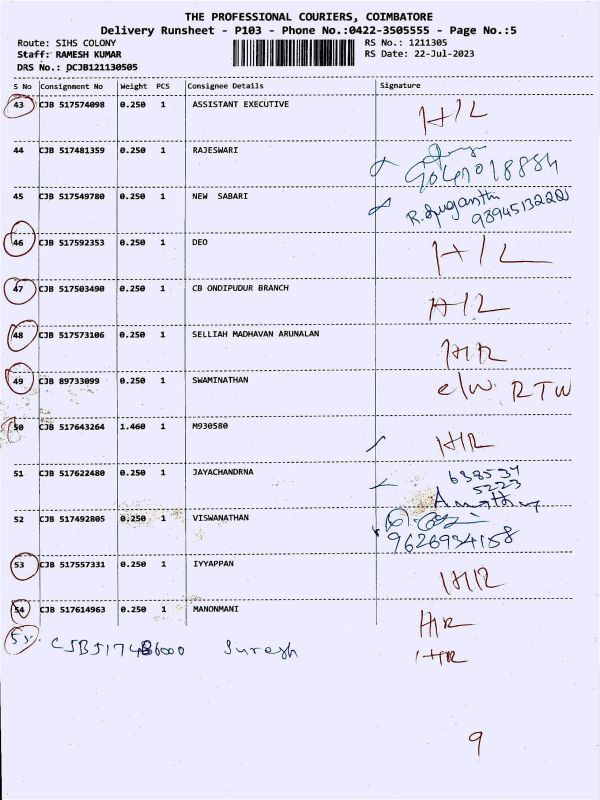 THE PROFESSIONAL COURIERS, COIMBATORE
Delivery Runsheet - P103 - Phone No.:0422-3505555 - Page No.:5
Route: SIHS COLONY RS No.: 1211305
Staff: RAMESH KUMAR RS Date: 22-Jul-2023
DRS No.: DCJB121130505
S No Consignment No Weight PCS Consignee Details Signature
43 CJB 517574098 0.250 1 ASSISTANT EXECUTIVE H/L
44 CJB 517481359 0.250 1 RAJESWARI
45 CJB 517549780 0.250 1 NEW SABARI R. Suganthi
46 CJB 517592353 0.250 1 DEO H/L
47 CJB 517503490 0.250 1 CB ONDIPUDUR BRANCH H/L
48 CJB 517573106 0.250 1 SELLIAH MADHAVAN ARUNALAN H/R
49 CJB 89733099 0.250 1 SWAMINATHAN c/w RTW
50 CJB 517643264 1.460 1 M930580 H/R
51 CJB 517622480 0.250 1 JAYACHANDRNA 638534
5223
52 CJB 517492805 0.250 1 VISWANATHAN
9626934158
53 CJB 517557331 0.250 1 IYYAPPAN H/R
54 CJB 517614963 0.250 1 MANONMANI H/R
55. Suresh H/R
9